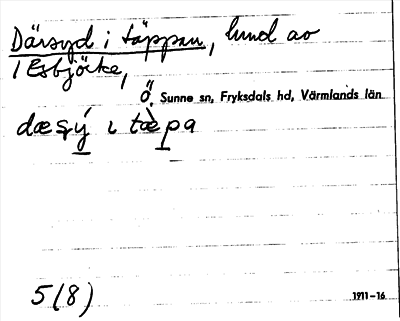 Därsyd i täppan, lund av
1 Esbjörke,
Ö. Sunne sn, Fryksdals hd, Värmlands län
dæşý ı tæ̀pa
5(8)
1911–16